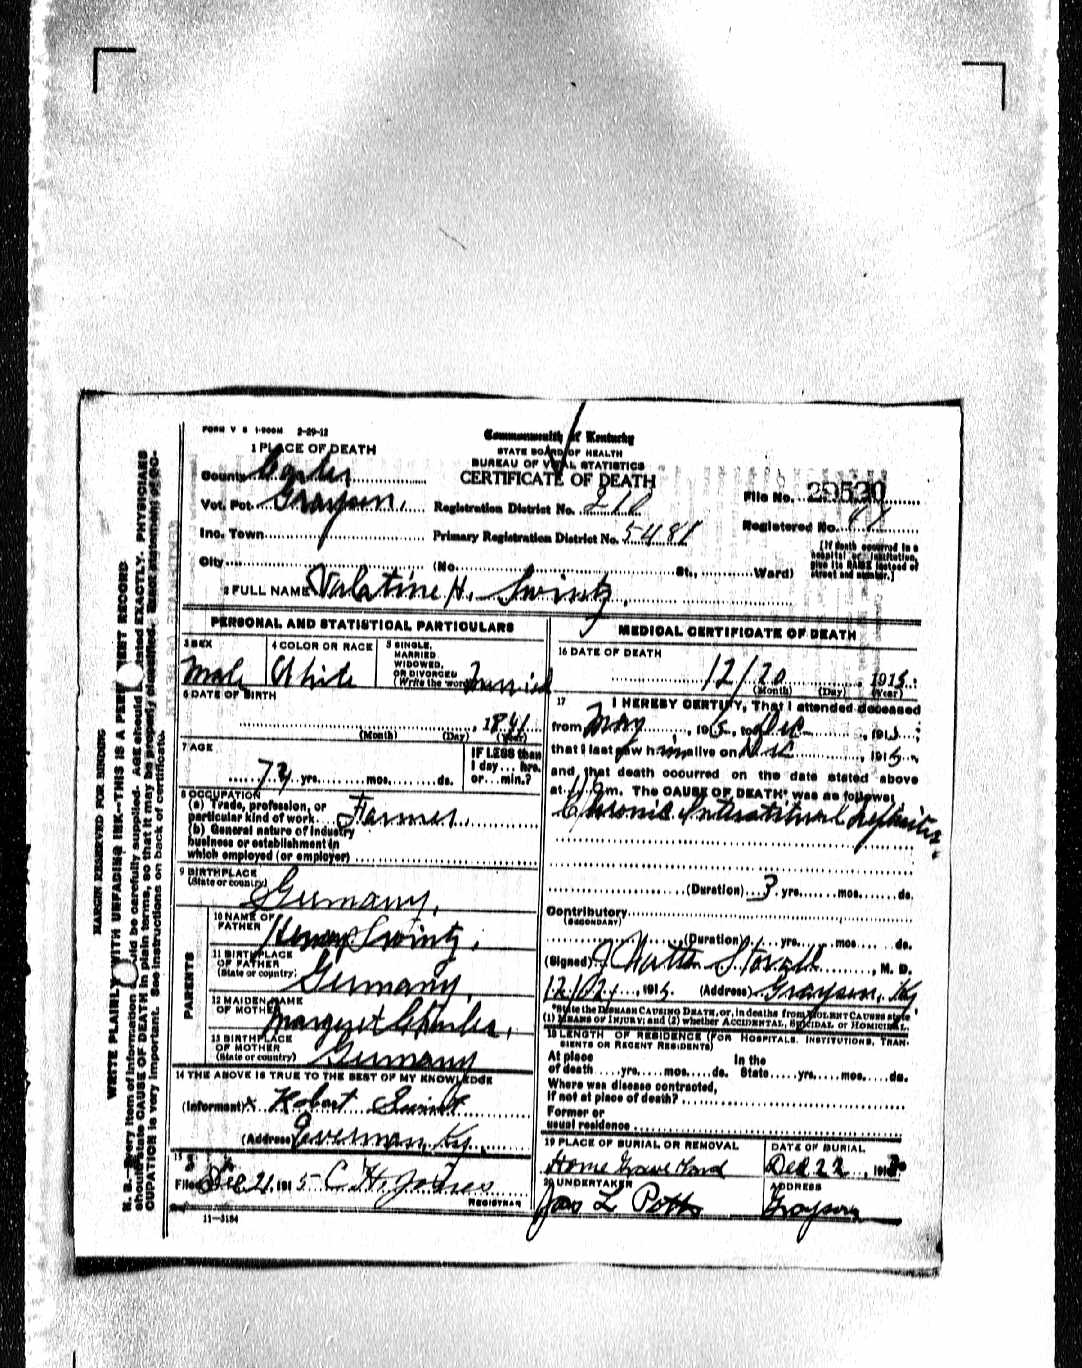 FORM V S 1-500M 2-29-12
Commonwealth of Kentucky
STATE BOARD OF HEALTH
BUREAU OF VITAL STATISTICS
CERTIFICATE OF DEATH
1 PLACE OF DEATH
County Carter
Vot. Pct. Grayson, Registration District No. 210 File No. 29530
Inc. Town Primary Registration District No. 5481 Registered No.
City (No. St., Ward)
[If death occurred in a hospital or institution, give its NAME instead of street and number.]
2 FULL NAME Valatine H. Swintz,
PERSONAL AND STATISTICAL PARTICULARS
3 SEX Male
4 COLOR OR RACE White
5 SINGLE, MARRIED WIDOWED, OR DIVORCED (Write the word) Married
6 DATE OF BIRTH
, 1841
(Month) (Day) (Year)
7 AGE
74 yrs. mos. ds.
IF LESS than 1 day... hrs. or... min.?
8 OCCUPATION
(a) Trade, profession, or particular kind of work Farmer
(b) General nature of industry business or establishment in which employed (or employer)
9 BIRTHPLACE
(State or country) Germany,
PARENTS
10 NAME OF FATHER Henry Swintz,
11 BIRTHPLACE OF FATHER (State or country) Germany,
12 MAIDEN NAME OF MOTHER Margret
13 BIRTHPLACE OF MOTHER (State or country) Germany
14 THE ABOVE IS TRUE TO THE BEST OF MY KNOWLEDGE
(Informant) x Robert Swint
(Address) Everman, Ky.
15
Filed Dec. 21, 1915 C H. Jones
REGISTRAR
11-3184
MEDICAL CERTIFICATE OF DEATH
16 DATE OF DEATH
12/20, 1915
(Month) (Day) (Year)
17 I HEREBY CERTIFY, That I attended deceased
from May, 1915, to Dec, 1915,
that I last saw him alive on Dec, 1915,
and that death occurred on the date stated above
at m. The CAUSE OF DEATH* was as follows:
Chronic Interstitual Nephritis.
(Duration) 3 yrs. mos. ds.
Contributory
(SECONDARY)
(Duration) yrs. mos. ds.
(Signed) J Watts Stovall, M. D.
12/21, 1915. (Address) Grayson, Ky
*State the DISEASE CAUSING DEATH, or, in deaths from VIOLENT CAUSES state
(1) MEANS OF INJURY; and (2) whether ACCIDENTAL, SUICIDAL OR HOMICIDAL.
18 LENGTH OF RESIDENCE (FOR HOSPITALS, INSTITUTIONS, TRANSIENTS OR RECENT RESIDENTS)
At place of death yrs. mos. ds. In the State yrs. mos. ds.
Where was disease contracted,
If not at place of death?
Former or
usual residence
19 PLACE OF BURIAL OR REMOVAL Home Grave Yard
DATE OF BURIAL Dec 22, 191
20 UNDERTAKER Jas L Potts
ADDRESS Grayson
MARGIN RESERVED FOR BINDING
WRITE PLAINLY WITH UNFADING INK—THIS IS A PERMANENT RECORD
N. B.—Every item of information should be carefully supplied. AGE should be stated EXACTLY. PHYSICIANS
should state CAUSE OF DEATH in plain terms, so that it may be properly classified. Exact statement of OC-
CUPATION is very important. See instructions on back of certificate.